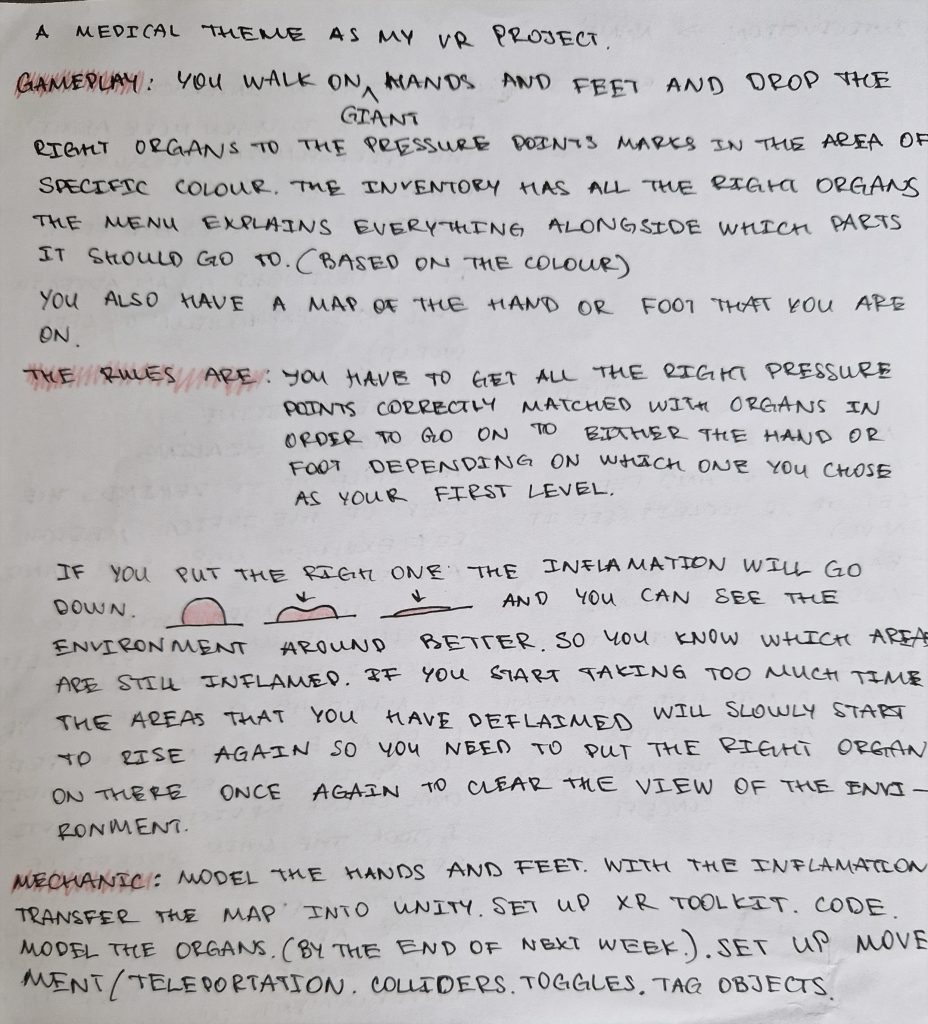 A MEDICAL THEME AS MY VR PROJECT.
GAMEPLAY: YOU WALK ON GIANT HANDS AND FEET AND DROP THE
RIGHT ORGANS TO THE PRESSURE POINTS MARKS IN THE AREA OF
SPECIFIC COLOUR. THE INVENTORY HAS ALL THE RIGHT ORGANS
THE MENU EXPLAINS EVERYTHING ALONGSIDE WHICH PARTS
IT SHOULD GO TO. (BASED ON THE COLOUR)
YOU ALSO HAVE A MAP OF THE HAND OR FOOT THAT YOU ARE
ON.
THE RULES ARE: YOU HAVE TO GET ALL THE RIGHT PRESSURE
POINTS CORRECTLY MATCHED WITH ORGANS IN
ORDER TO GO ON TO EITHER THE HAND OR
FOOT DEPENDING ON WHICH ONE YOU CHOSE
AS YOUR FIRST LEVEL.
IF YOU PUT THE RIGH ONE THE INFLAMATION WILL GO
DOWN. AND YOU CAN SEE THE
ENVIRONMENT AROUND BETTER. SO YOU KNOW WHICH AREAS
ARE STILL INFLAMED. IF YOU START TAKING TOO MUCH TIME
THE AREAS THAT YOU HAVE DEFLAIMED WILL SLOWLY START
TO RISE AGAIN SO YOU NEED TO PUT THE RIGHT ORGAN
ON THERE ONCE AGAIN TO CLEAR THE VIEW OF THE ENVI-
RONMENT.
MECHANIC: MODEL THE HANDS AND FEET. WITH THE INFLAMATION
TRANSFER THE MAP INTO UNITY. SET UP XR TOOLKIT. CODE.
MODEL THE ORGANS. (BY THE END OF NEXT WEEK.). SET UP MOVE
MENT/TELEPORTATION. COLLIDERS. TOGGLES. TAG OBJECTS.